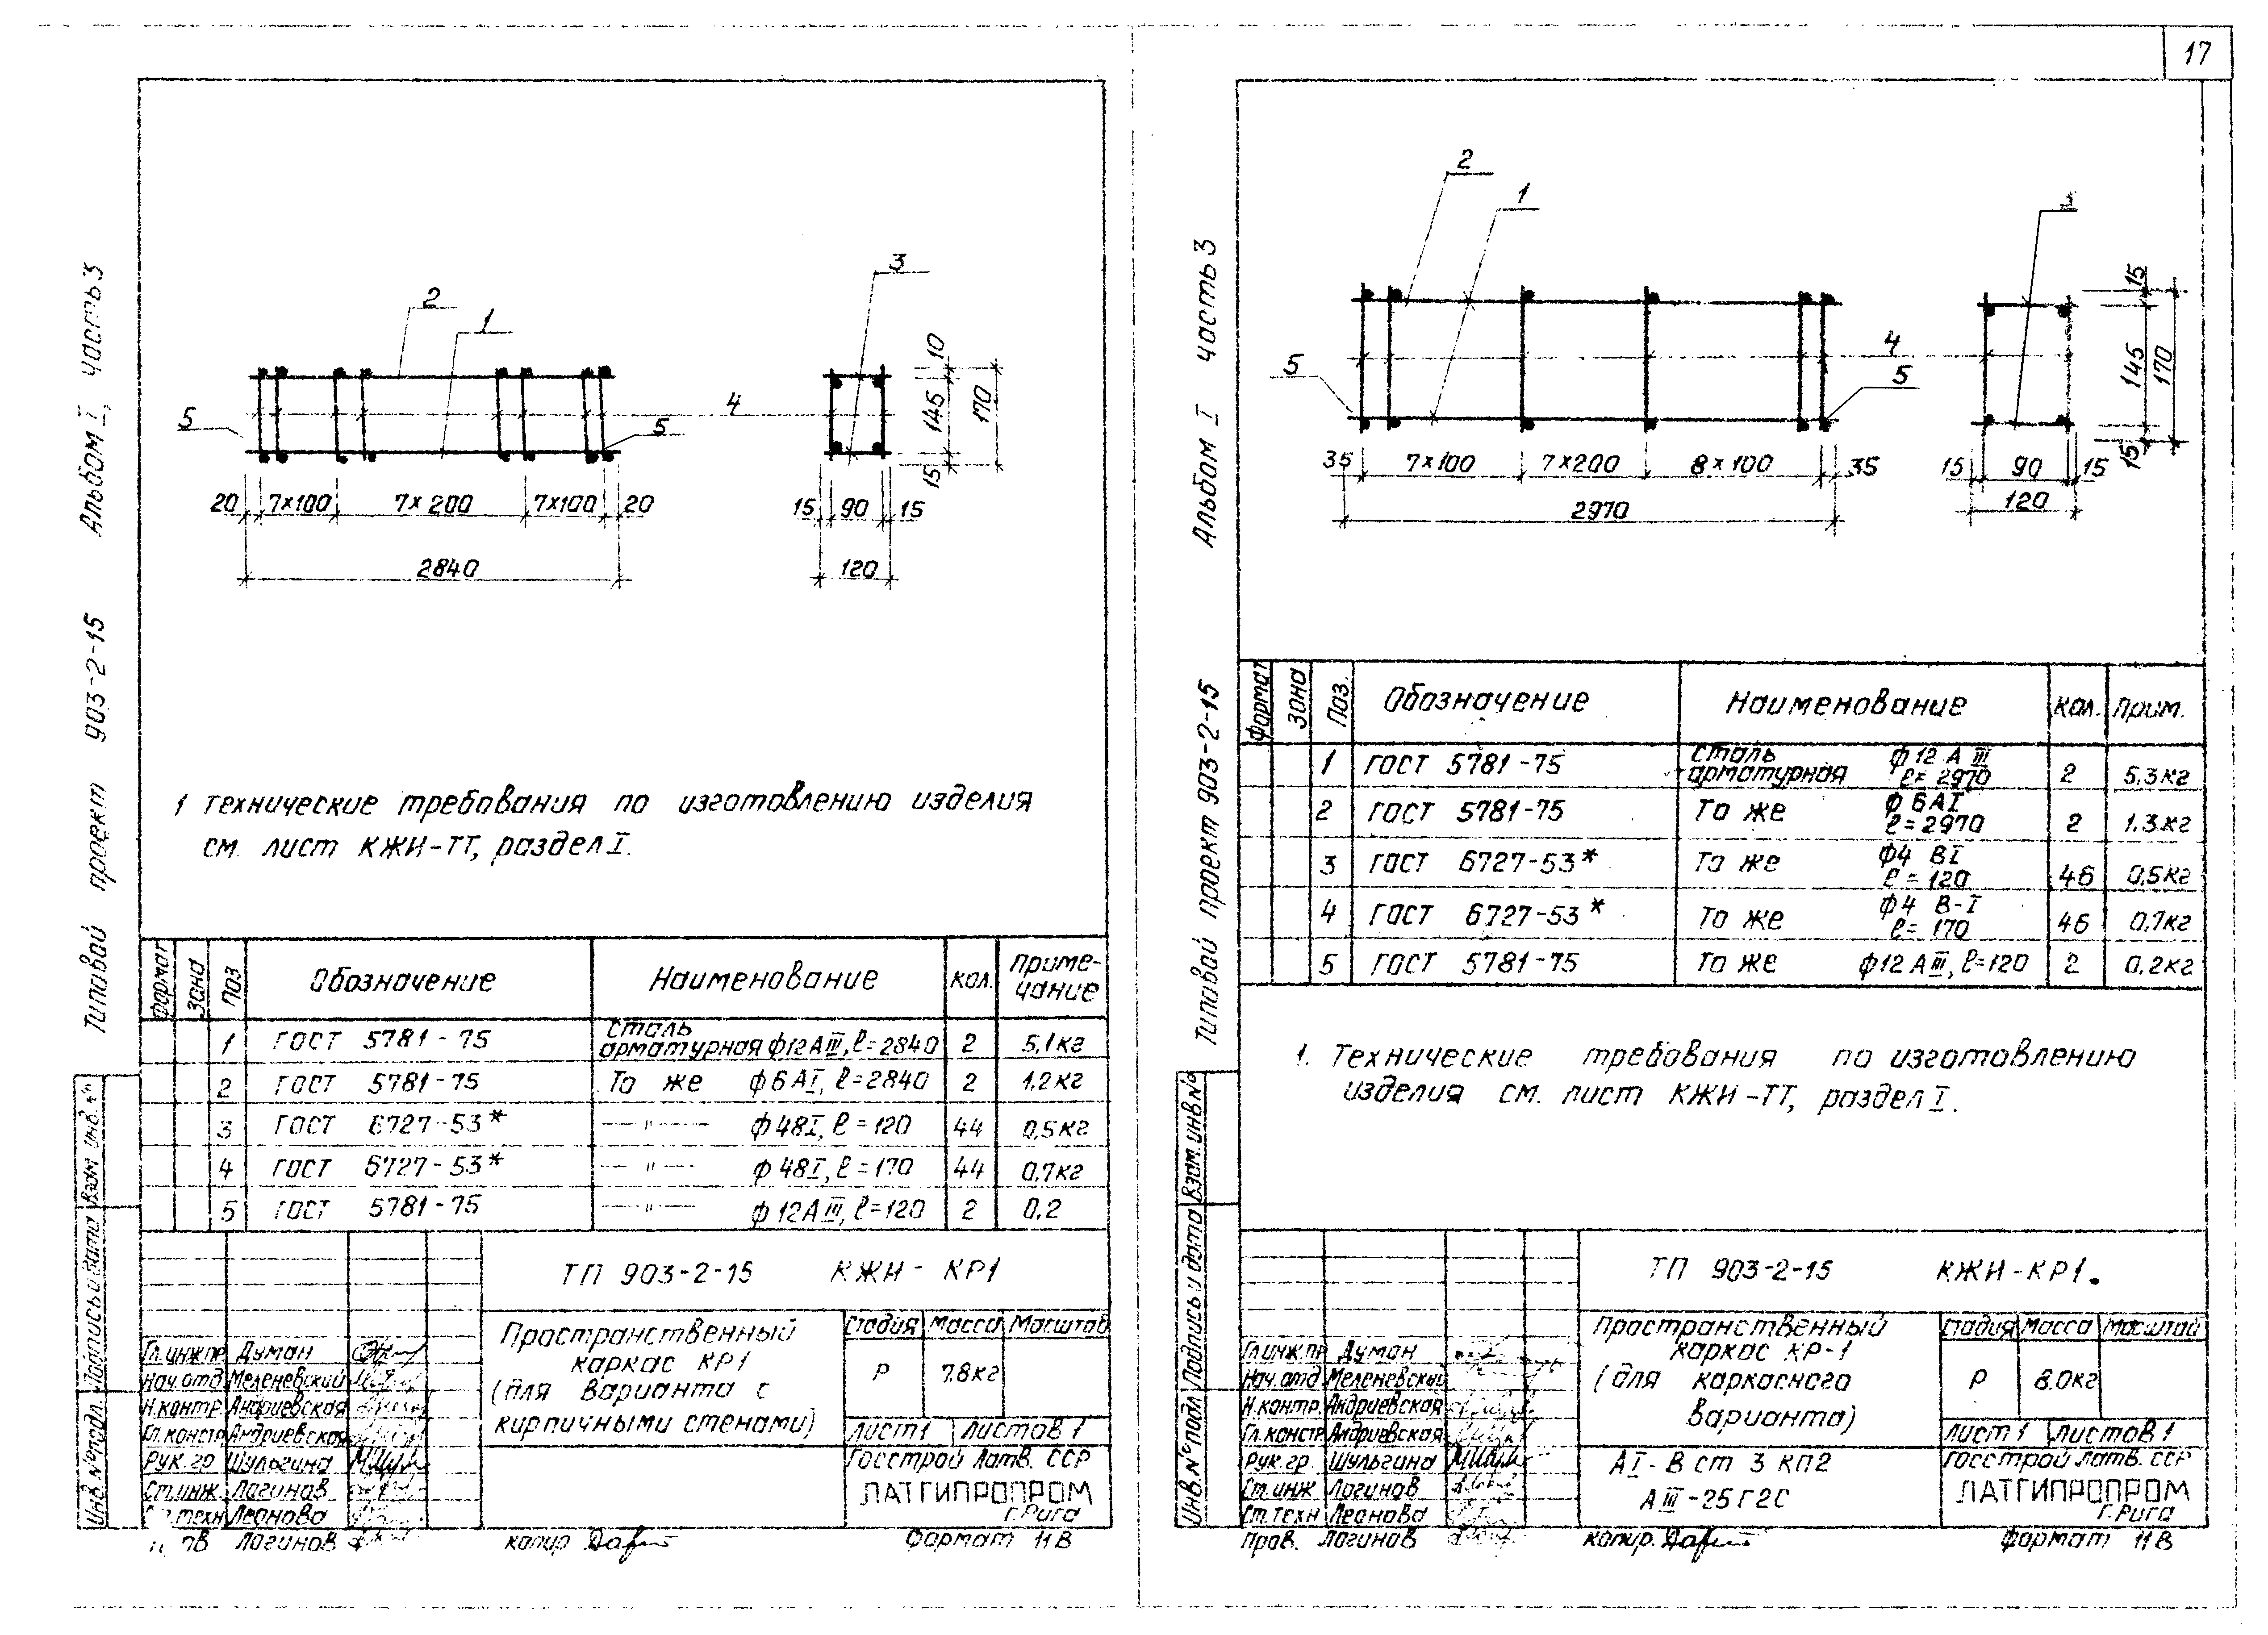 17
Альбом I, часть 3
Типовой проект 903-2-15
2
1
3
5
4
5
10
145
170
15
20 7×100 7×200 7×100 20
2840
15 90 15
120
1 Технические требования по изготовлению изделия
см. лист КЖИ-ТТ, раздел I.
формат зона Поз Обозначение Наименование кол. приме-
чание
1 ГОСТ 5781-75 сталь
арматурная ф12АIII, ℓ=2840 2 5,1кг
2 ГОСТ 5781-75 То же ф6АI, ℓ=2840 2 1.2кг
3 ГОСТ 6727-53* —"— ф4ВI, ℓ=120 44 0,5кг
4 ГОСТ 6727-53* —"— ф4ВI, ℓ=170 44 0,7кг
5 ГОСТ 5781-75 —"— ф12АIII, ℓ=120 2 0,2
ТП 903-2-15 КЖИ-КР1
Пространственный
каркас КР1
(для варианта с
кирпичными стенами)
Стадия Масса Масштаб
Р 7.8кг
Лист 1 Листов 1
Госстрой Латв. ССР
ЛАТГИПРОПРОМ
г.Рига
Гл.инж.пр Думан
Нач.отд Меленевский
Н.контр. Андриевская
Гл.констр Андриевская
Рук.гр Шульгина
Ст.инж. Логинов
техн Леонова
Логинов
копир
Формат 11В
Инв.№подл. Подпись и дата Взам. инв. №
Альбом I часть 3
Типовой проект 903-2-15
2
1
3
5
4
5
15
145
170
15
35 7×100 7×200 8×100 35
2970
15 90 15
120
Формат Зона Поз. Обозначение Наименование кол. прим.
1 ГОСТ 5781-75 Сталь
арматурная ф12 А III
ℓ=2970 2 5,3кг
2 ГОСТ 5781-75 То же ф6АI
ℓ=2970 2 1.3кг
3 ГОСТ 6727-53* То же ф4 ВI
ℓ=120 46 0,5кг
4 ГОСТ 6727-53* То же ф4 В-I
ℓ=170 46 0,7кг
5 ГОСТ 5781-75 То же ф12 АIII, ℓ=120 2 0,2кг
1. Технические требования по изготовлению
изделия см. лист КЖИ-ТТ, раздел I.
ТП 903-2-15 КЖИ-КР1.
Пространственный
каркас КР-1
(для каркасного
варианта)
Стадия Масса Масштаб
Р 8.0кг
Лист 1 Листов 1
АI-В ст 3 кп2
АIII-25Г2С
Госстрой Латв. ССР
ЛАТГИПРОПРОМ
г.Рига
Гл.инж.пр Думан
Нач.отд Меленевский
Н.контр. Андриевская
Гл.констр Андриевская
Рук.гр. Шульгина
Ст.инж Логинов
Ст.техн Леонова
Пров. Логинов
копир.
Формат 11В
Инв.№подл Подпись и дата Взам.инв.№